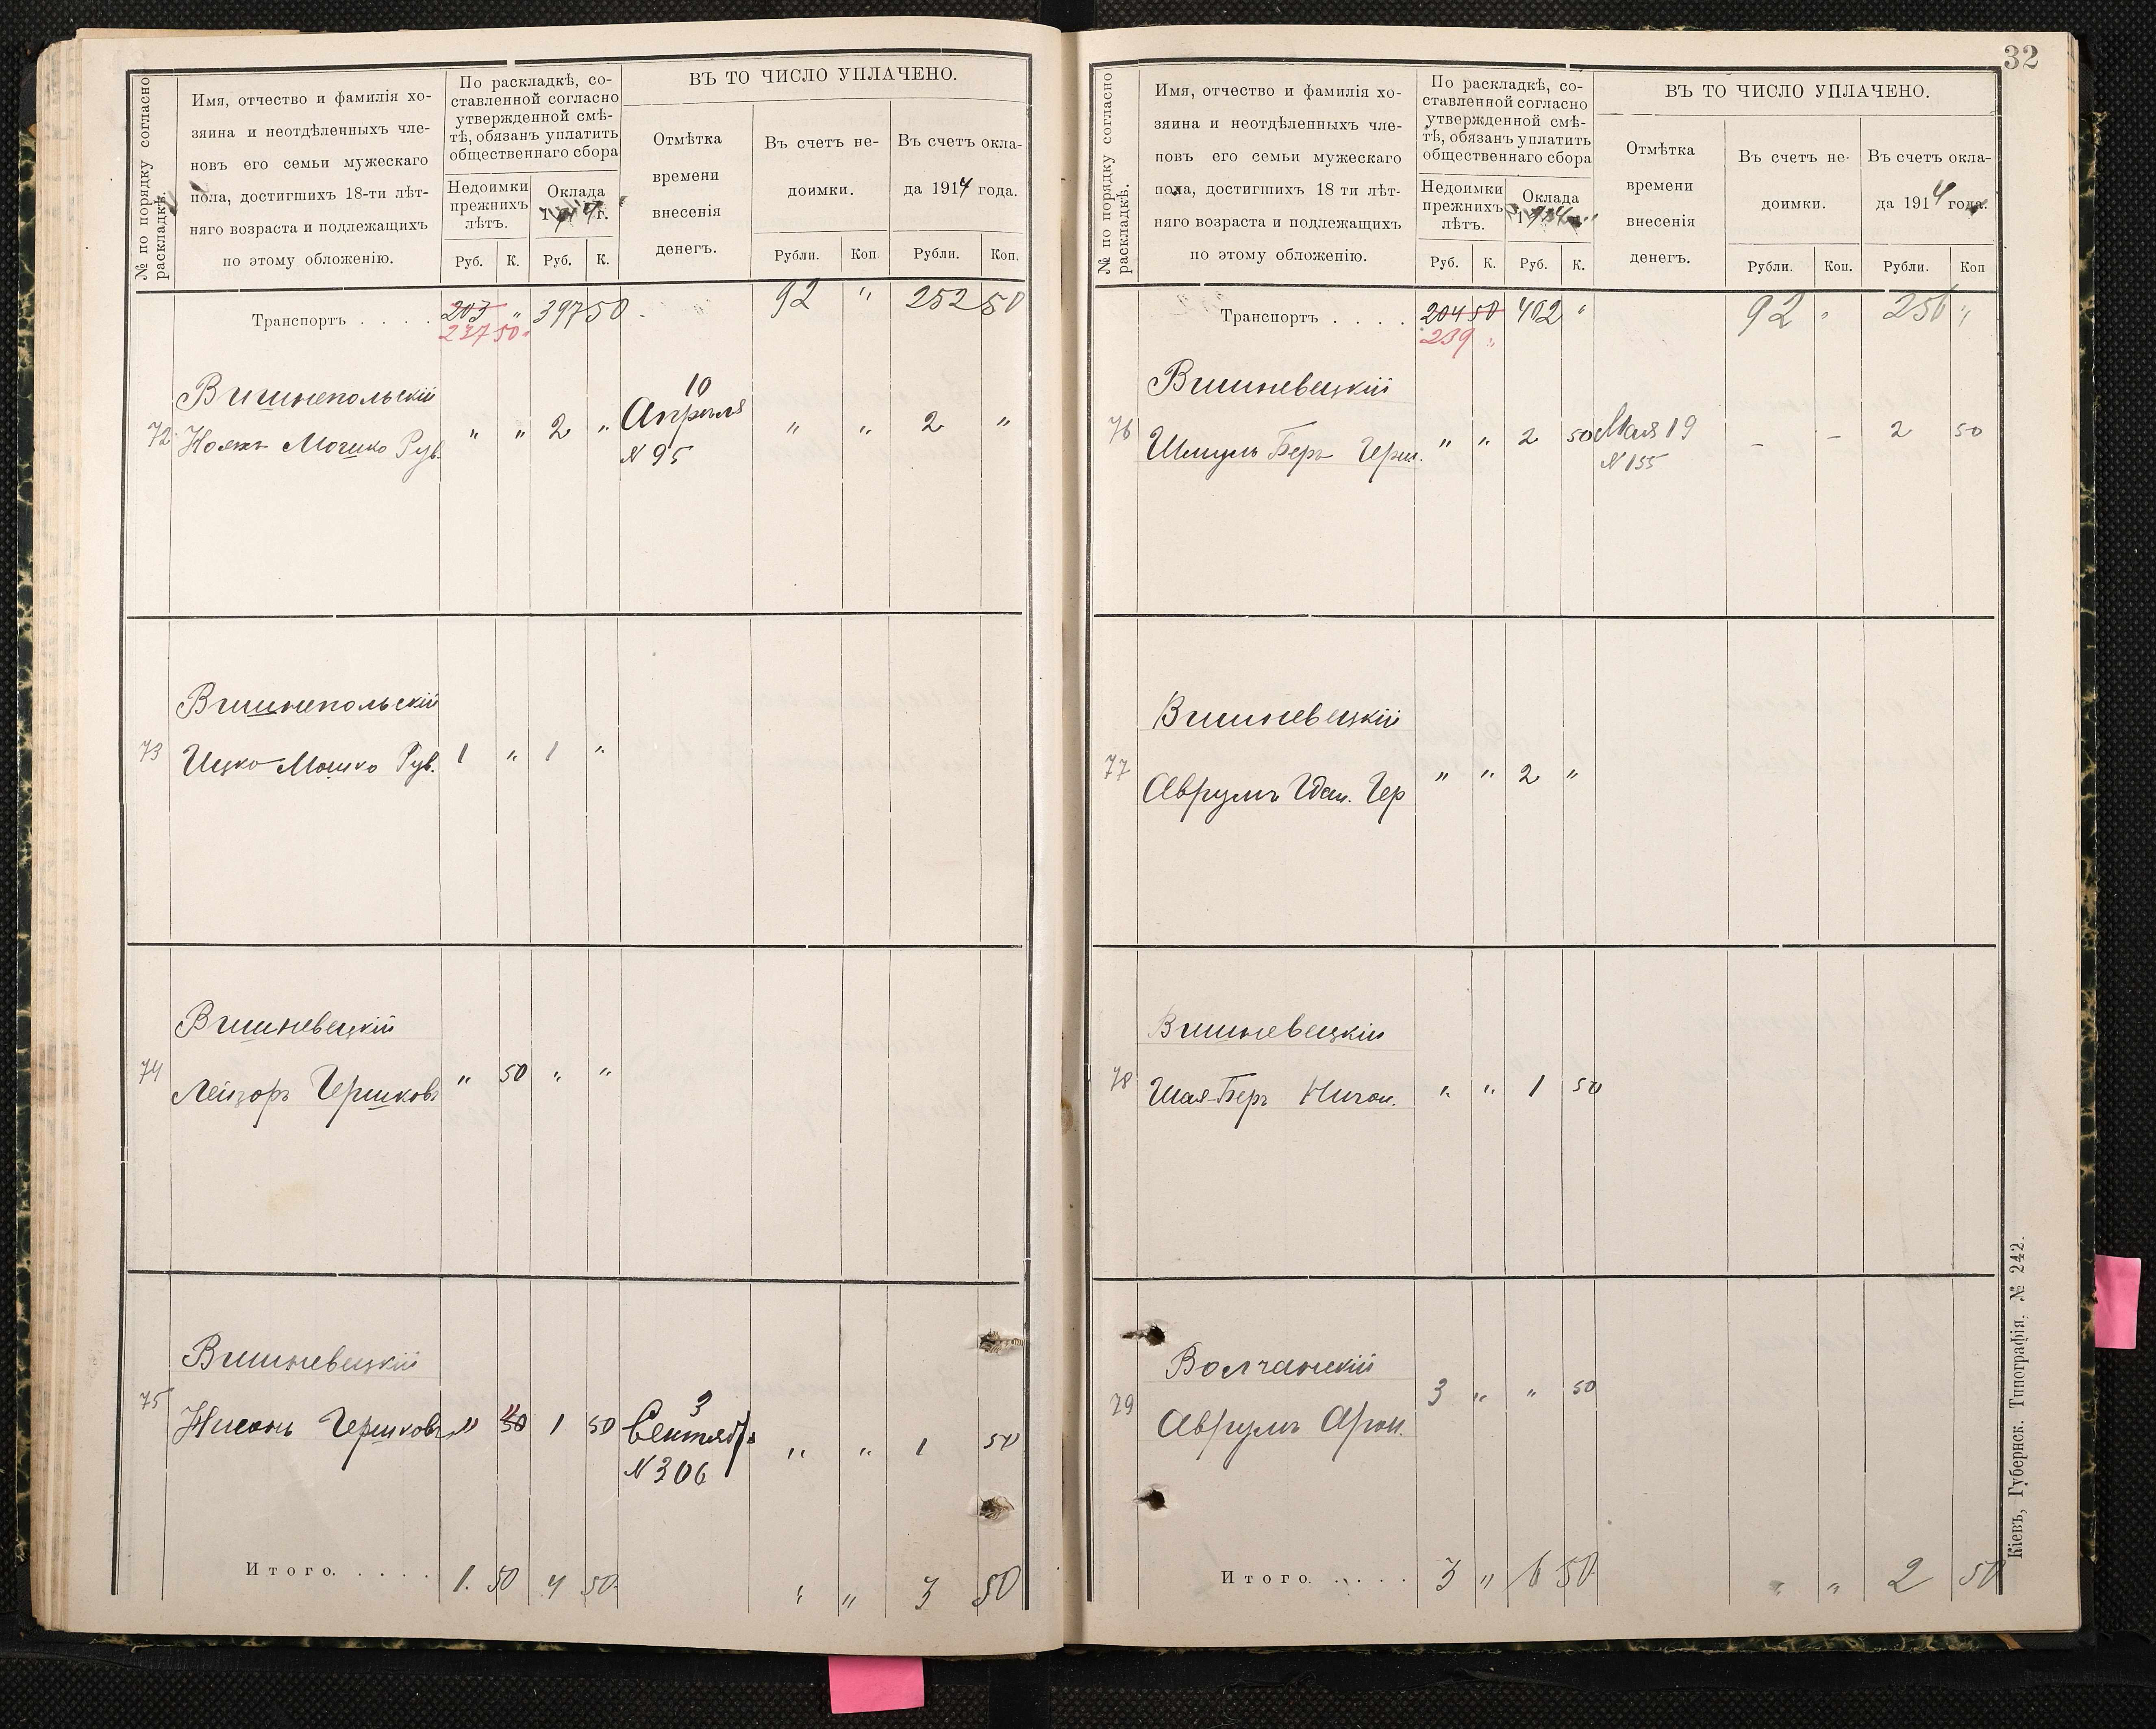 № по порядку согласно
раскладкѣ.
Имя, отчество и фамилія хо-
зяина и неотдѣленныхъ чле-
новъ его семьи мужескаго
пола, достигшихъ 18-ти лѣт-
няго возраста и подлежащихъ
по этому обложенію.
По раскладкѣ, со-
ставленной согласно
утвержденной смѣ-
тѣ, обязанъ уплатить
общественнаго сбора
Недоимки
прежнихъ
лѣтъ.
Оклада
г.
Руб. К. Руб. К.
ВЪ ТО ЧИСЛО УПЛАЧЕНО.
Отмѣтка
времени
внесенія
денегъ.
Въ счетъ не-
доимки.
Рубли. Коп.
Въ счетъ окла-
да 1914 года.
Рубли. Коп.
Транспортъ . . . . 203 " 397 50 92 " 252 50
237 50
Вишнепольскій
10
72 Мошко Рув. " " 2 " Апрѣля " " 2 "
N 95
Вишнепольскій
73 Ицко-Мошко Рув. 1 " 1 "
Вишневецкій
74 Лейзоръ Гершковъ " 50 " "
Вишневецкій
3
75 Нисонь Гершковъ " 50 1 50 Сентяб. " " 1 50
N 306
Итого. . . . . 1. 50 4 50 " " 3 50
32
№ по порядку согласно
раскладкѣ.
Имя, отчество и фамилія хо-
зяина и неотдѣленныхъ чле-
новъ его семьи мужескаго
пола, достигшихъ 18 ти лѣт-
няго возраста и подлежащихъ
по этому обложенію.
По раскладкѣ, со-
ставленной согласно
утвержденной смѣ-
тѣ, обязанъ уплатить
общественнаго сбора
Недоимки
прежнихъ
лѣтъ.
Оклада
Руб. К. Руб. К.
ВЪ ТО ЧИСЛО УПЛАЧЕНО.
Отмѣтка
времени
внесенія
денегъ.
Въ счетъ не-
доимки.
Рубли. Коп.
Въ счетъ окла-
да 1914 года.
Рубли. Коп
Транспортъ . . . . 204 50 402 " 92 " 256 "
239 "
Вишневецкій
76 Шмуль Беръ Герш. " " 2 50 Мая 19 – – 2 50
N 155
Вишневецкій
77 Аврумъ Гдал. Гер " " 2 "
Вишневецкій
78 Шая-Беръ Нисон. " " 1 50
Волчанскій
79 Аврумъ Арон. 3 " " 50
Итого. . . . . 3 " 6 50 " " 2 50
Кіевъ, Губернск. Типографія. № 242.